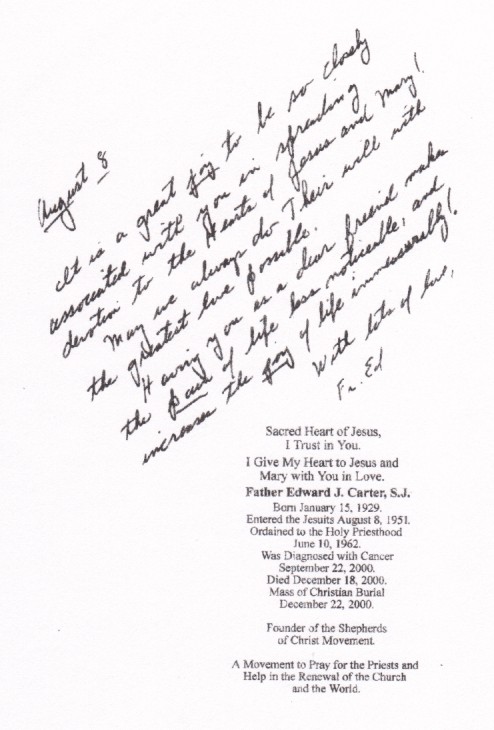 August 8
It is a great joy to be so closely
associated with you in spreading
devotion to the Hearts of Jesus and Mary!
May we always do Their will with
the greatest love possible.
Having you as a dear friend makes
the pain of life less noticeable, and
increases the joy of life immeasurably!
With lots of love,
Fr. Ed
Sacred Heart of Jesus,
I Trust in You.
I Give My Heart to Jesus and
Mary with You in Love.
Father Edward J. Carter, S.J.
Born January 15, 1929.
Entered the Jesuits August 8, 1951.
Ordained to the Holy Priesthood
June 10, 1962.
Was Diagnosed with Cancer
September 22, 2000.
Died December 18, 2000.
Mass of Christian Burial
December 22, 2000.
Founder of the Shepherds
of Christ Movement.
A Movement to Pray for the Priests and
Help in the Renewal of the Church
and the World.